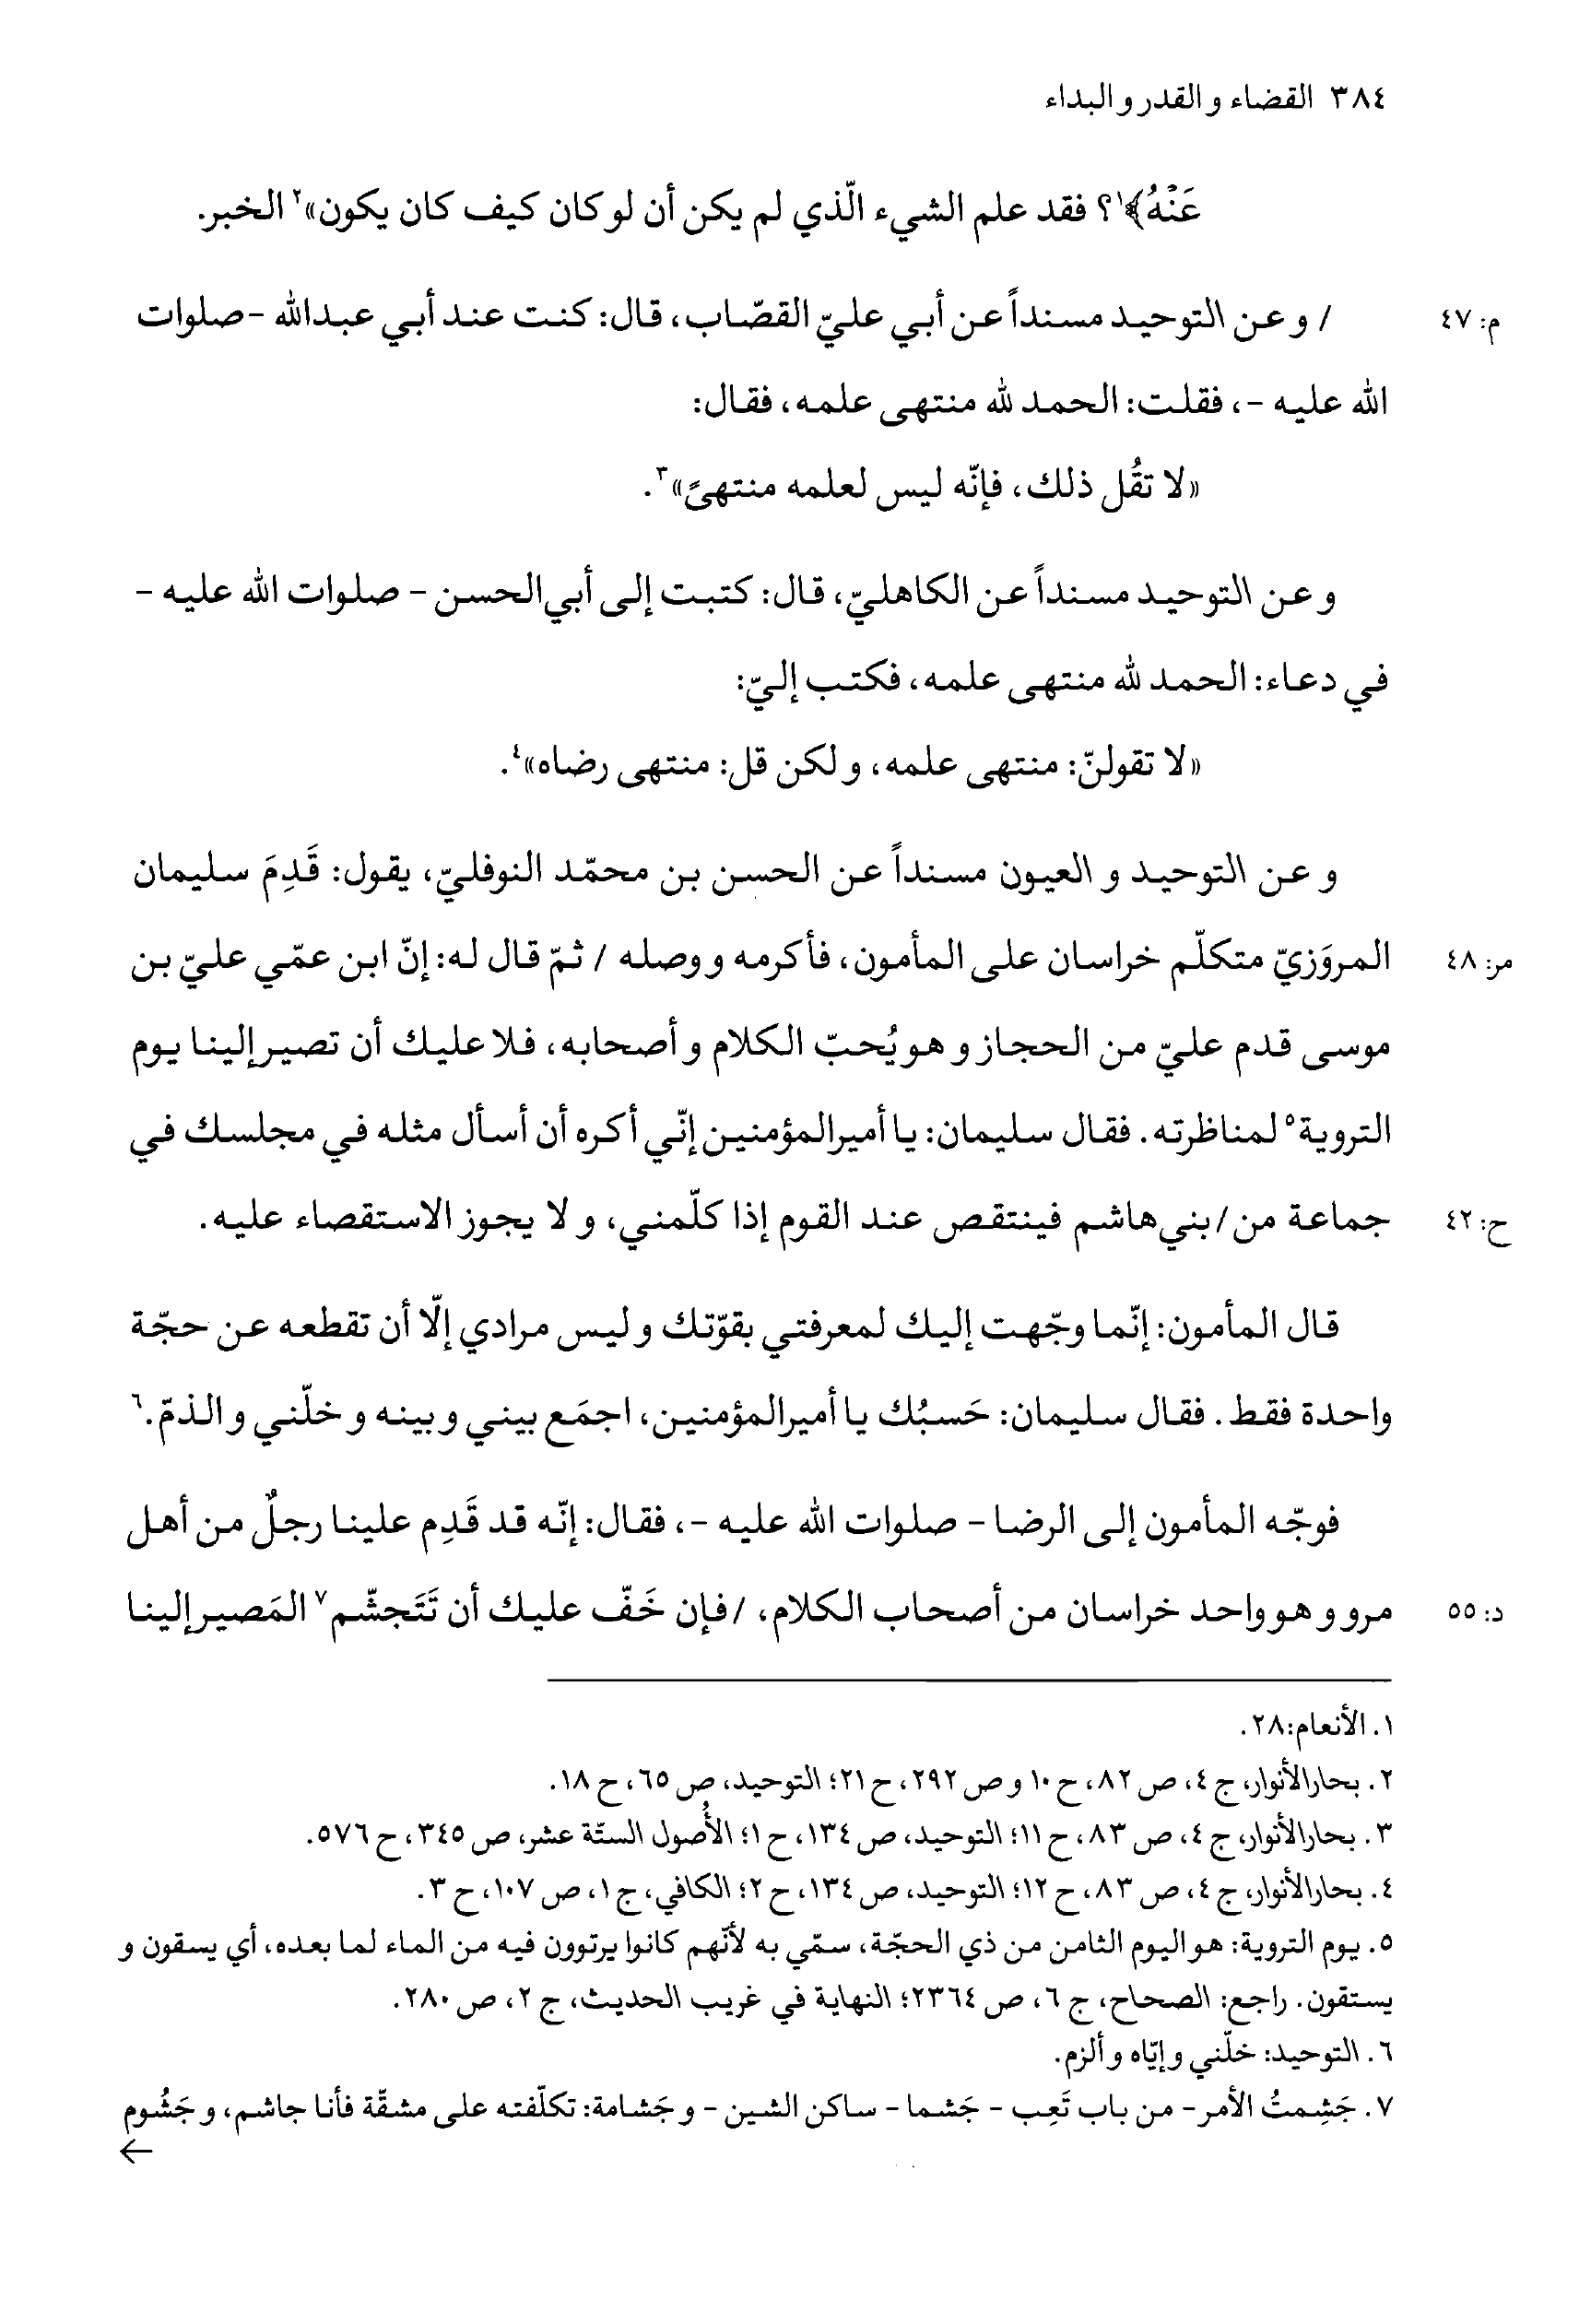 ٣٨٤ القضاء و القدر و البداء
عَنْهُ﴾١؟ فقد علم الشيء الّذي لم يكن أن لو كان كيف كان يكون»٢ الخبر.
م: ٤٧ / و عن التوحيد مسنداً عن أبي عليّ القصّاب، قال: كنت عند أبي عبدالله -صلوات
الله عليه -، فقلت: الحمد لله منتهى علمه، فقال:
«لا تقُل ذلك، فإنّه ليس لعلمه منتهىً»٣.
و عن التوحيد مسنداً عن الكاهليّ، قال: كتبت إلى أبي‌الحسن - صلوات الله عليه -
في دعاء: الحمد لله منتهى علمه، فكتب إليّ:
«لا تقولنّ: منتهى علمه، و لكن قل: منتهى رضاه»٤.
و عن التوحيد و العيون مسنداً عن الحسن بن محمّد النوفليّ، يقول: قَدِمَ سليمان
مر: ٤٨ المروَزيّ متكلّم خراسان على المأمون، فأكرمه و وصله / ثمّ قال له: إنّ ابن عمّي عليّ بن
موسى قدم عليّ من الحجاز و هو يُحبّ الكلام و أصحابه، فلا عليك أن تصير إلينا يوم
التروية٥ لمناظرته. فقال سليمان: يا أميرالمؤمنين إنّي أكره أن أسأل مثله في مجلسك في
ح: ٤٢ جماعة من / بني‌هاشم فينتقص عند القوم إذا كلّمني، و لا يجوز الاستقصاء عليه.
قال المأمون: إنّما وجّهت إليك لمعرفتي بقوّتك و ليس مرادي إلّا أن تقطعه عن حجّة
واحدة فقط. فقال سليمان: حَسبُك يا أميرالمؤمنين، اجمَع بيني و بينه و خلّني و الذمّ.٦
فوجّه المأمون إلى الرضا - صلوات الله عليه -، فقال: إنّه قد قَدِم علينا رجلٌ من أهل
د: ٥٥ مرو و هو واحد خراسان من أصحاب الكلام، / فإن خَفّ عليك أن تَتَجشّم٧ المَصير إلينا
١. الأنعام:٢٨.
٢. بحارالأنوار، ج ٤، ص ٨٢، ح ١٠ و ص ٢٩٢، ح ٢١؛ التوحيد، ص ٦٥، ح ١٨.
٣. بحارالأنوار، ج ٤، ص ٨٣، ح ١١؛ التوحيد، ص ١٣٤، ح ١؛ الأُصول الستّة عشر، ص ٣٤٥، ح ٥٧٦.
٤. بحارالأنوار، ج ٤، ص ٨٣، ح ١٢؛ التوحيد، ص ١٣٤، ح ٢؛ الكافي، ج ١، ص ١٠٧، ح ٣.
٥. يوم التروية: هو اليوم الثامن من ذي الحجّة، سمّي به لأنّهم كانوا يرتوون فيه من الماء لما بعده، أي يسقون و
يستقون. راجع: الصحاح، ج ٦، ص ٢٣٦٤؛ النهاية في غريب الحديث، ج ٢، ص ٢٨٠.
٦. التوحيد: خلّني و إيّاه و ألزم.
٧. جَشِمتُ الأمر - من باب تَعِب - جَشما - ساكن الشين - و جَشامة: تكلّفته على مشقّة فأنا جاشم، و جَشُوم
←